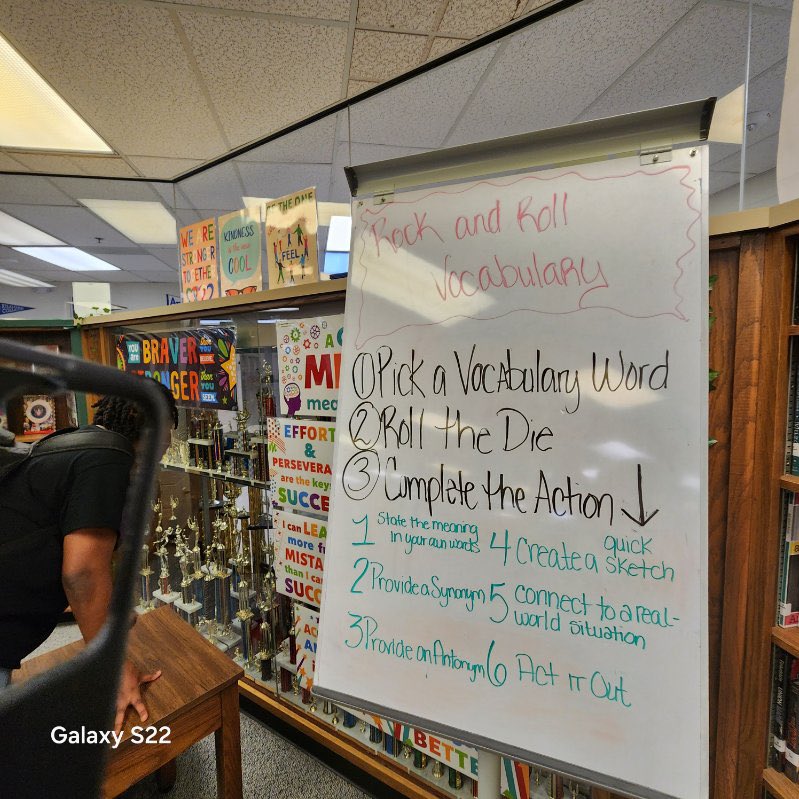 Rock and Roll
Vocabulary
① Pick a Vocabulary Word
② Roll the Die
③ Complete the Action ↓
1 State the meaning
in your own words
2 Provide a Synonym
3 Provide an Antonym
4 Create a quick
sketch
5 connect to a real-
world situation
6 Act it Out
WE ARE
STRONGER
TOGETHER
KINDNESS
is the new
COOL
BE THE ONE
BRAVER
STRONGER
EFFORT
&
PERSEVERA
are the keys
SUCCE
I can LEA
more fr
MISTA
than I can
SUCC
BETTE
Galaxy S22